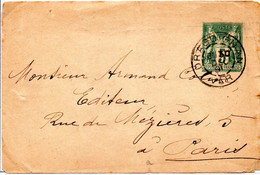 Monsieur Armand Co
Editeur
Rue de Mézières, 5
à Paris